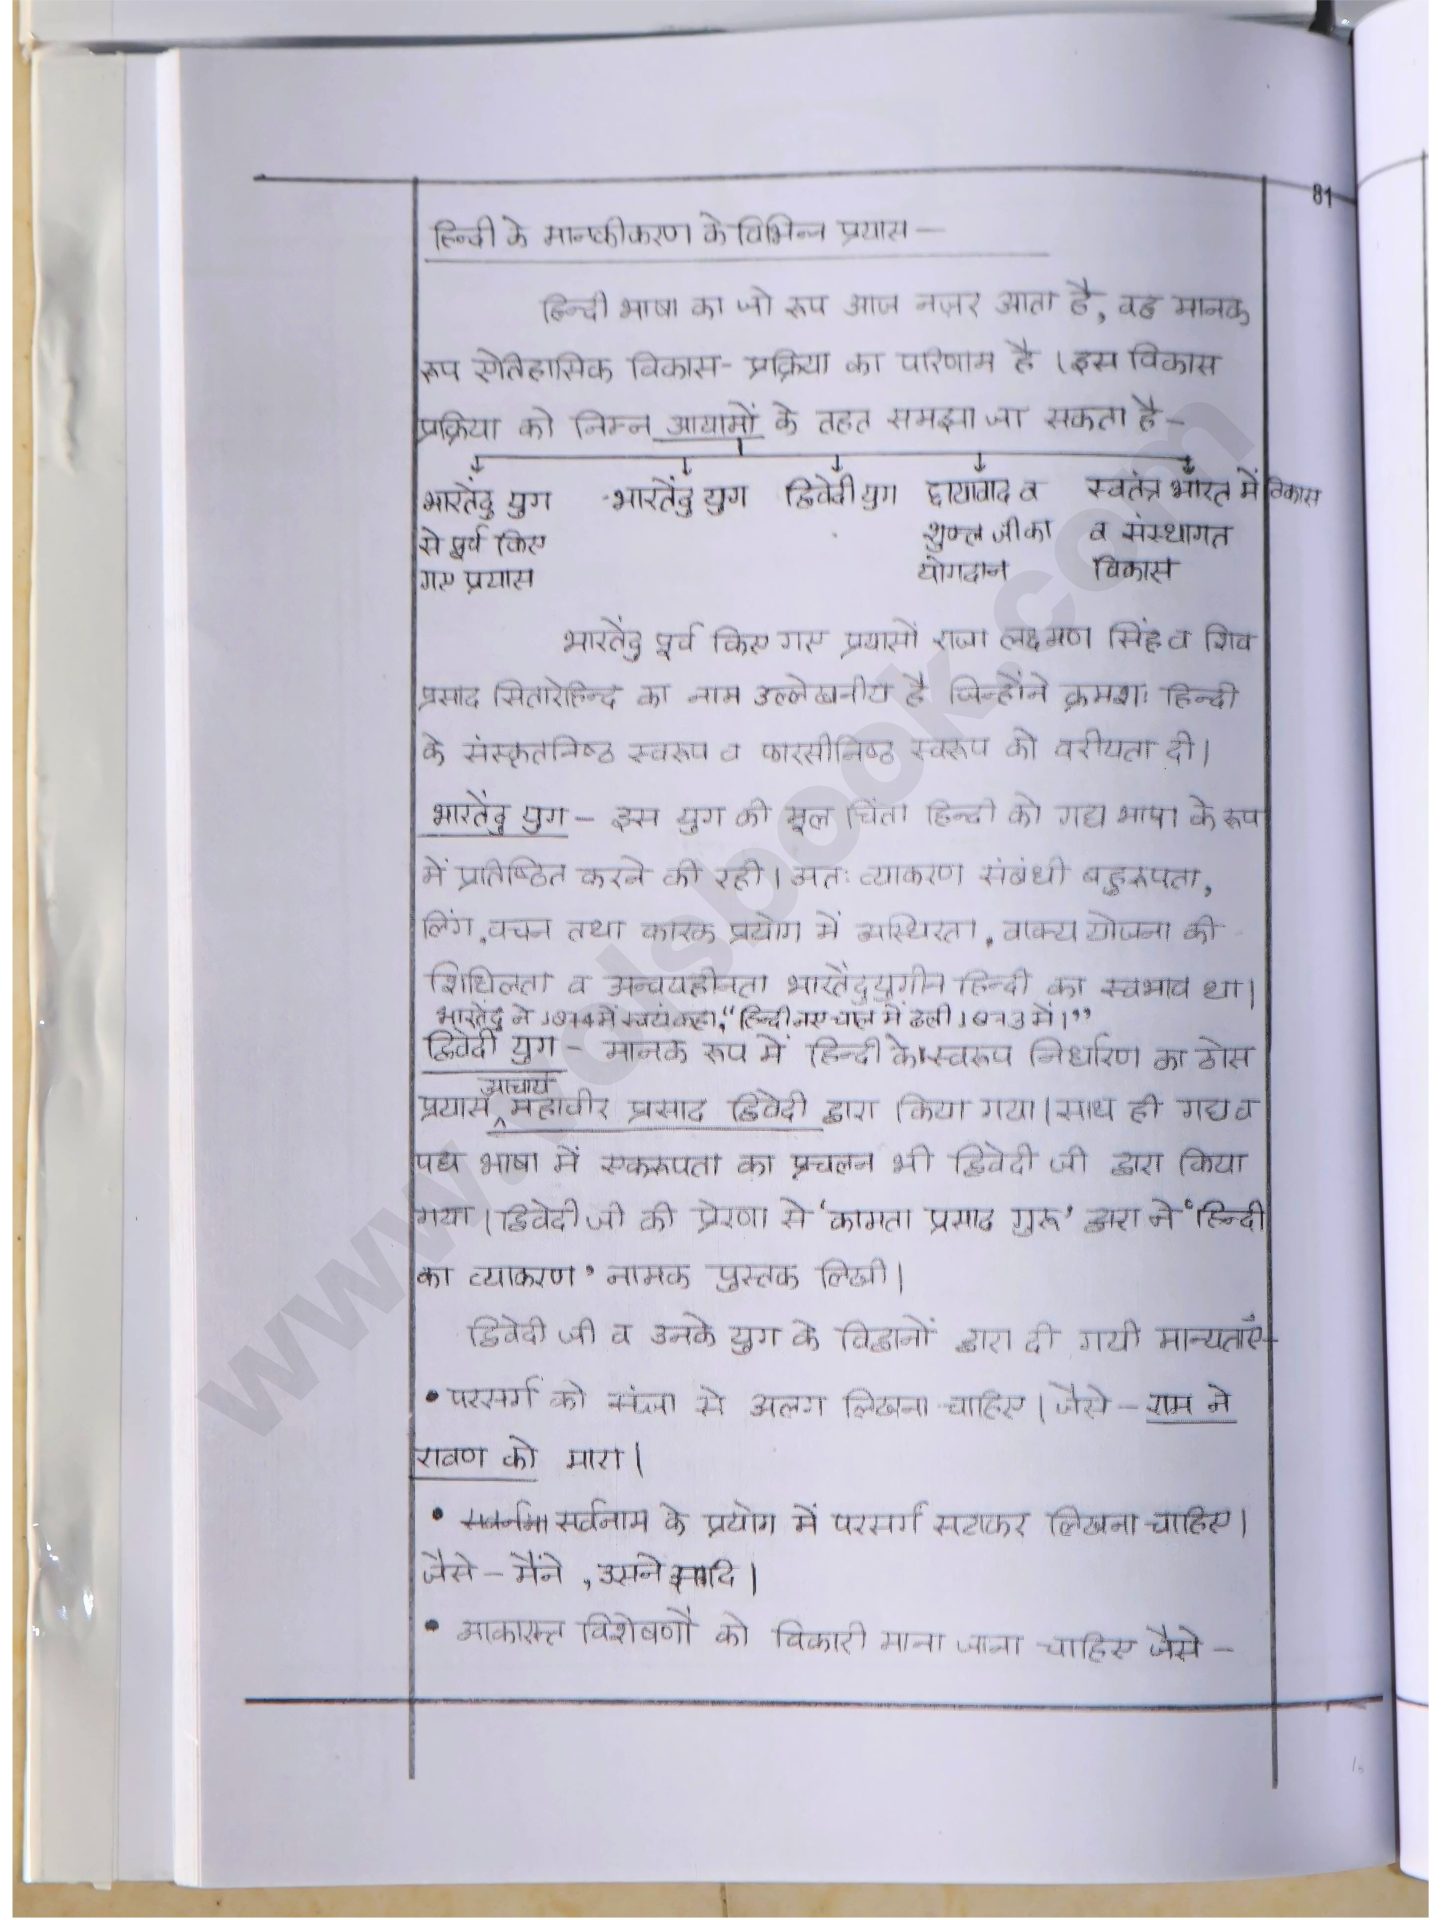 81
हिन्दी के मानकीकरण के विभिन्न प्रयास –
हिन्दी भाषा का जो रूप आज नज़र आता है, वह मानक
रूप ऐतिहासिक विकास- प्रक्रिया का परिणाम है । इस विकास
प्रक्रिया को निम्न आयामों के तहत समझा जा सकता है –
भारतेंदु युग
से पूर्व किए
गए प्रयास
भारतेंदु युग
द्विवेदी युग
छायावाद व
शुक्ल जी का
योगदान
स्वतंत्र भारत में विकास
व संस्थागत
विकास
भारतेंदु पूर्व किए गए प्रयासों राजा लक्ष्मण सिंह व शिव
प्रसाद सितारेहिन्द का नाम उल्लेखनीय है जिन्होंने क्रमशः हिन्दी
के संस्कृतनिष्ठ स्वरूप व फारसीनिष्ठ स्वरूप को वरीयता दी।
भारतेंदु युग – इस युग की मूल चिंता हिन्दी को गद्य भाषा के रूप
में प्रतिष्ठित करने की रही। अतः व्याकरण संबंधी बहुरूपता,
लिंग, वचन तथा कारक प्रयोग में अस्थिरता, वाक्य योजना की
शिथिलता व अन्वयहीनता भारतेंदुयुगीन हिन्दी का स्वभाव था।
भारतेंदु ने में स्वयं कहा, “हिन्दी नए चाल में ढली 1873 में।”
द्विवेदी युग – मानक रूप में हिन्दी के स्वरूप निर्धारण का ठोस
प्रयास आचार्य महावीर प्रसाद द्विवेदी द्वारा किया गया। साथ ही गद्य व
पद्य भाषा में एकरूपता का प्रचलन भी द्विवेदी जी द्वारा किया
गया। द्विवेदी जी की प्रेरणा से ‘कामता प्रसाद गुरू’ द्वारा ने ‘हिन्दी
का व्याकरण’ नामक पुस्तक लिखी।
द्विवेदी जी व उनके युग के विद्वानों द्वारा दी गयी मान्यताएँ–
• परसर्ग को संज्ञा से अलग लिखना चाहिए। जैसे – राम ने
रावण को मारा।
• सर्वनाम के प्रयोग में परसर्ग सटाकर लिखना चाहिए।
जैसे – मैंने, उसने आदि।
• आकारान्त विशेषणों को विकारी माना जाना चाहिए जैसे –